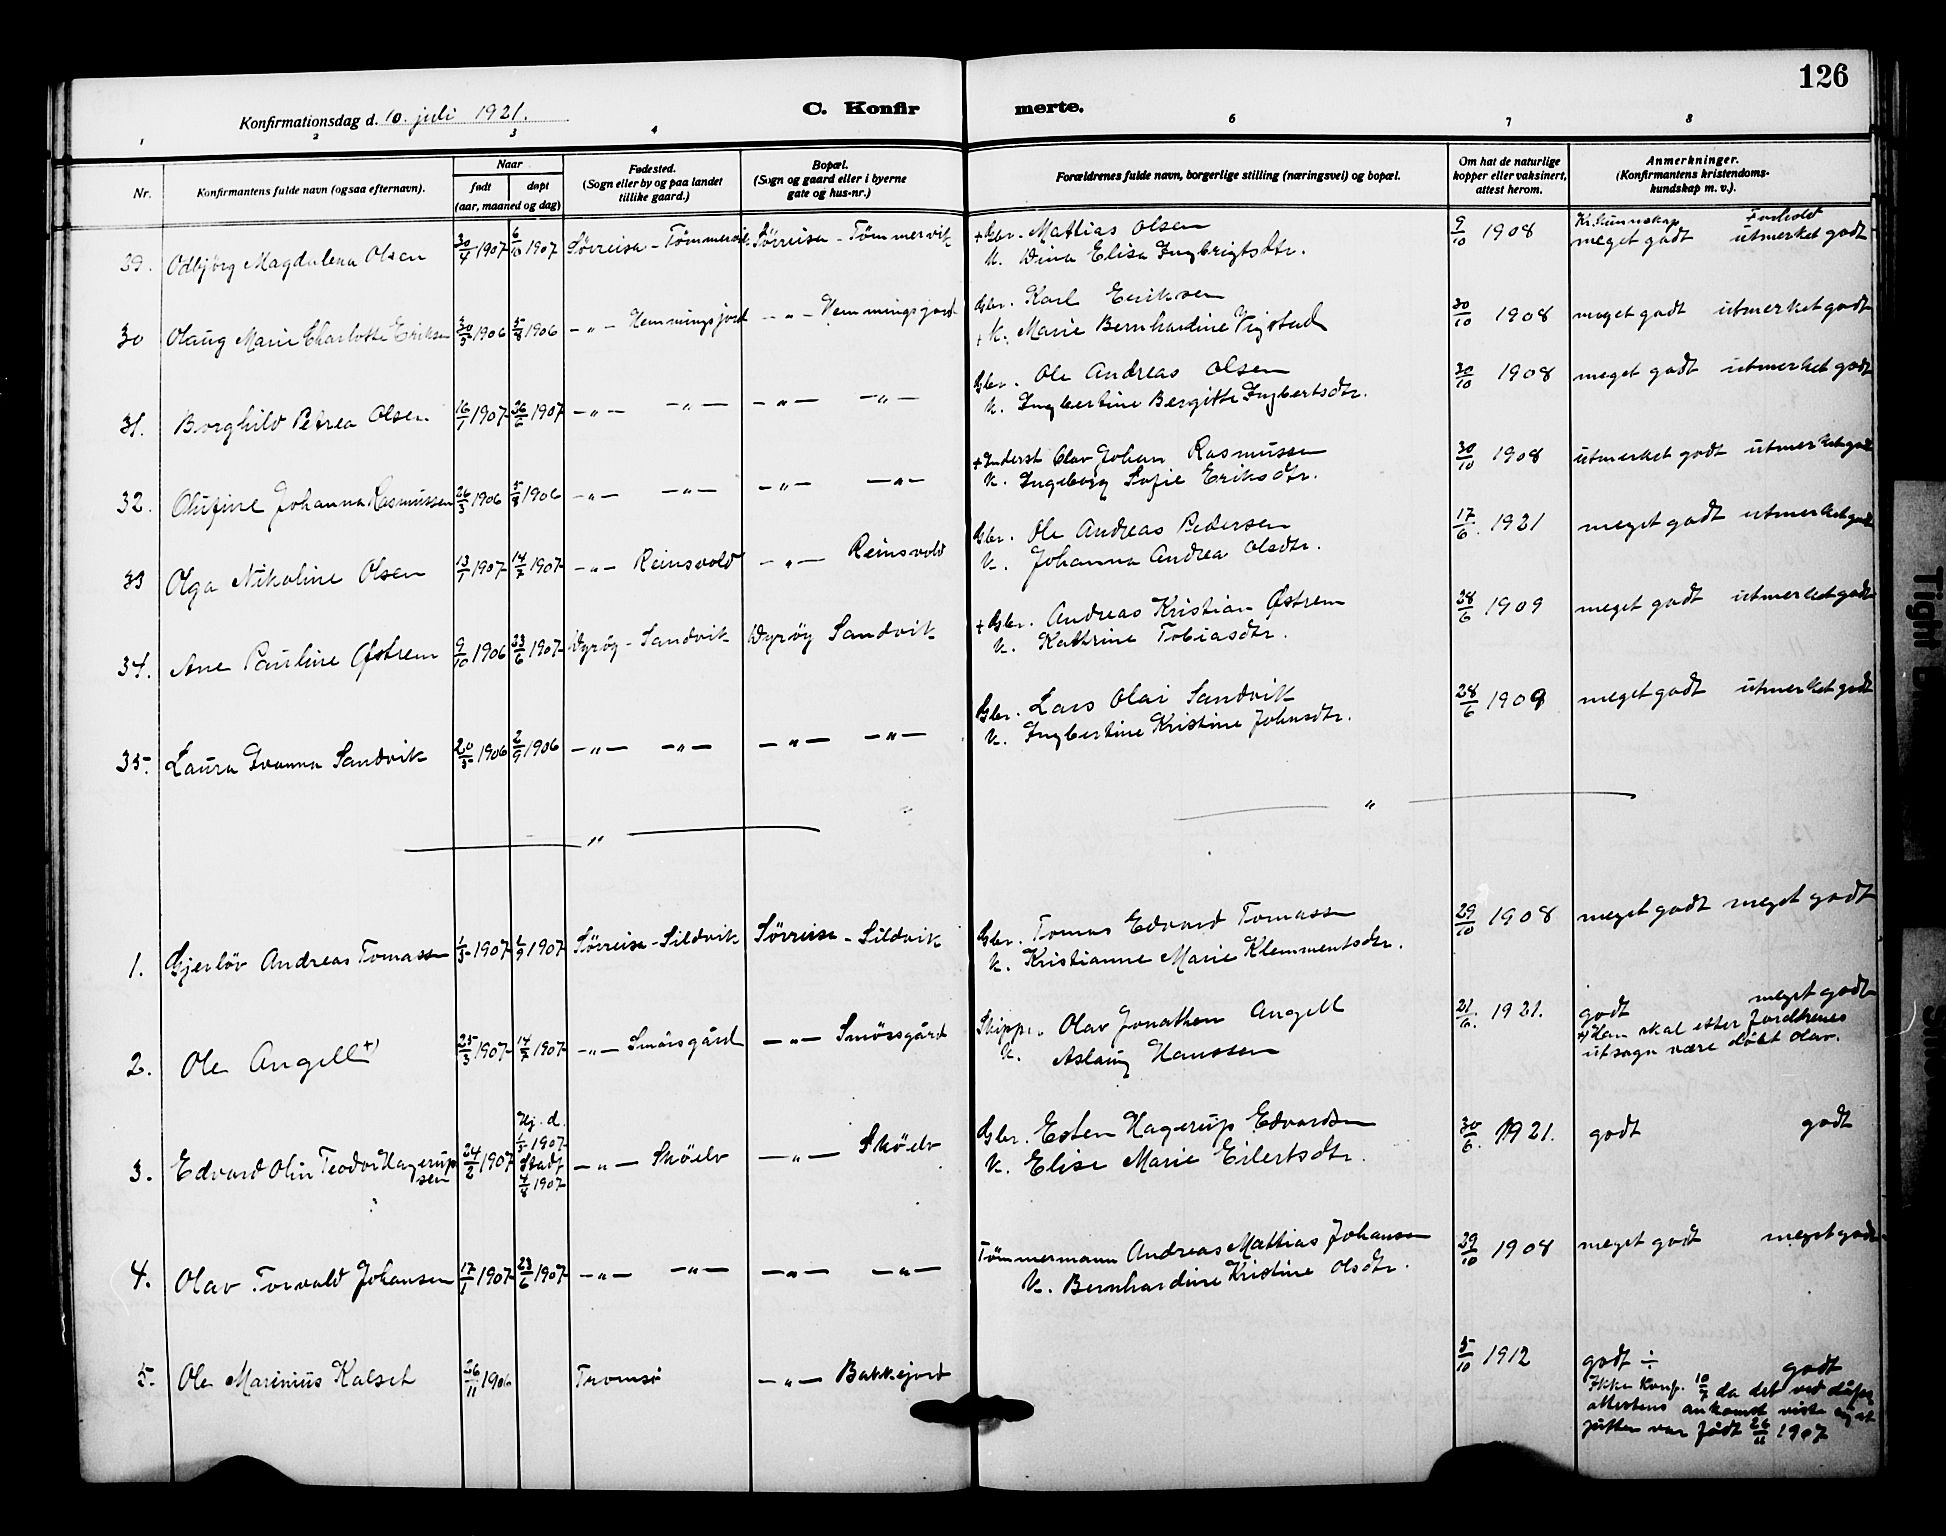 126
Konfirmationsdag d. 10. juli 1921.
C. Konfirmerte.
1 2 3 4 6 7 8
Nr. Konfirmantens fulde navn (ogsaa efternavn). Naar født døpt (aar, maaned og dag) Fødested. (Sogn eller by og paa landet tillike gaard.) Bopæl. (Sogn og gaard eller i byerne gate og hus-nr.) Forældrenes fulde navn, borgerlige stilling (næringsvei) og bopæl. Om hat de naturlige kopper eller vaksinert, attest herom. Anmerkninger. (Konfirmantens kristendoms-kundskap m. v.).
Kr. kunnskap Forhold
29. Odbjørg Magdalena Olsen 30/4 1907 6/10 1907 Sørreisa - Tømmervik Sørreisa - Tømmervik + Gbr. Mattias Olsen 9/10 1908 meget godt utmerket godt
K. Dina Elisa Ingbrigtsdtr.
30 Olaug Marie Charlotte Eriksen 30/5 1906 5/8 1906 — " — Hemmingsjord — " — Hemmingsjord Gbr. Karl Eriksen 30/10 1908 meget godt utmerket godt
+ K. Marie Bernhardine Vigstad
31. Borghild Petrea Olsen 16/1 1907 26/6 1907 — " — — " — — " — — " — Gbr. Ole Andreas Olsen 30/10 1908 meget godt utmerket godt
K. Ingbertine Bergitte Ingbertsdtr.
32. Olufine Johanna Rasmussen 26/5 1906 5/8 1906 — " — — " — — " — — " — + Inderst Olav Johan Rasmussen 30/10 1908 utmerket godt utmerket godt
K. Ingeborg Sofie Eriksdtr.
33 Olga Nikoline Olsen 13/1 1907 14/7 1907 — " — Reinsvold — " — Reinsvold Gbr. Ole Andreas Pedersen 17/6. 1921 meget godt utmerket godt
K. Johanna Andrea Olsdtr.
34. Ane Pauline Østrem 9/10 1906 23/6 1907 Dyrøy - Sandvik Dyrøy Sandvik + Gbr. Andreas Kristian Østrem 28/6 1909 meget godt utmerket godt
K. Kathrine Tobiasdtr.
35. Laura Ivanna Sandvik 20/5 1906 2/9 1906 — " — — " — — " — — " — Gbr. Lars Olai Sandvik 28/6 1909 meget godt utmerket godt
K. Ingbertine Kristine Johnsdtr.
— " — — " —
1. Gjerløv Andreas Tomassen 1/5 1907 1/9 1907 Sørreisa - Sildvik Sørreisa - Sildvik Gbr. Tomas Edvard Tomassen 29/10 1908 meget godt meget godt
K. Kristianne Marie Klemmentsdtr.
2. Ole Angell +) 25/3 1907 14/7 1907 — " — Smørsgård — " — Smørsgård Skipper Olav Jonathan Angell 21/6. 1921. godt meget godt
K. Aslaug Hanssen +) Han skal etter foreldrenes
utsagn være døbt Olav.
3. Edvard Olin Teodor Hagerupsen 24/2 1907 Hj. d. 1/5 1907 Stadf. 4/8 1907 — " — Skøelv — " — Skøelv Gbr. Esten Hagerup Edvardsen 30/6. 1921. godt godt
K. Elise Marie Eilertsdtr.
4. Olav Torvald Johansen 17/1 1907 23/6 1907 — " — — " — — " — — " — Tømmermann Andreas Mattias Johansen 29/10 1908 meget godt meget godt
K. Bernhardine Kristine Olsdtr.
5. Ole Marinius Kalset 26/11 1906 Tromsø — " — Bakkejord 5/10 1912 godt ÷ godt
Ikke konf. 10/7 da det ved dåps
attestens ankomst viste sig at
gutten var født 26/11 1907